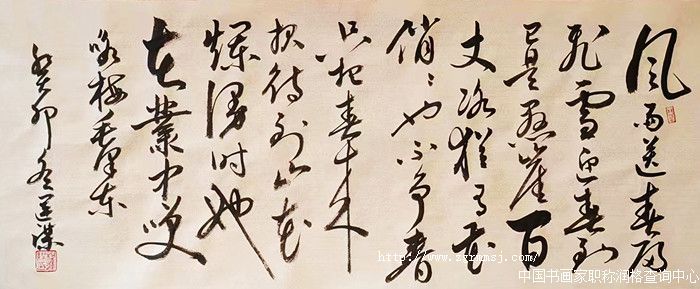 风雨送春归
飞雪迎春到
已是悬崖百
丈冰猶有花
俏〻也不争春
只把春来
报待到山花
烂漫时她
在叢中笑
咏梅毛泽东
癸卯冬
中国书画家职称润格查询中心